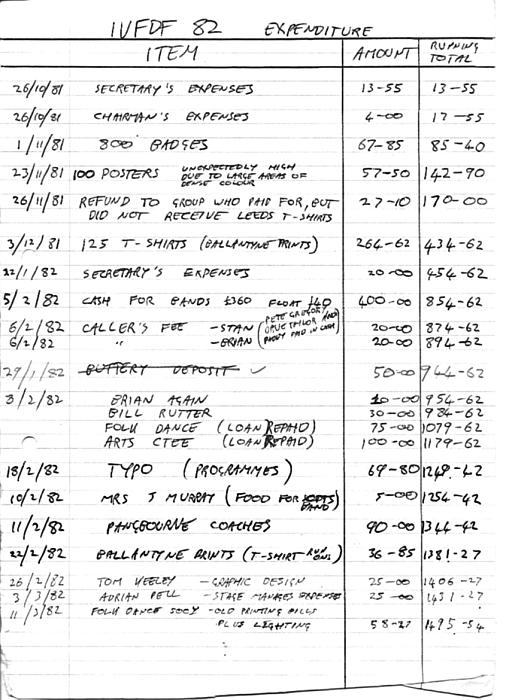 IVFDF 82 EXPENDITURE
ITEM AMOUNT RUNNING TOTAL
26/10/81 SECRETARY'S EXPENSES 13-55 13-55
26/10/81 CHAIRMAN'S EXPENSES 4-00 17-55
1/11/81 800 BADGES 67-85 85-40
23/11/81 100 POSTERS UNEXPECTEDLY HIGH DUE TO LARGE AREAS OF DENSE COLOUR 57-50 142-90
26/11/81 REFUND TO GROUP WHO PAID FOR, BUT 27-10 170-00
DID NOT RECEIVE LEEDS T-SHIRTS
3/12/81 125 T-SHIRTS (BALLANTYNE PRINTS) 264-62 434-62
22/1/82 SECRETARY'S EXPENSES 20-00 454-62
5/2/82 CASH FOR BANDS £360 FLOAT £40 400-00 854-62
6/2/82 CALLER'S FEE -STAN (PETE GREGORY DAVE TAYLOR AND PADDY PAID IN CASH) 20-00 874-62
6/2/82 " -BRIAN 20-00 894-62
29/1/82 BUTTERY DEPOSIT ✓ 50-00 944-62
8/2/82 BRIAN AGAIN 10-00 954-62
BILL RUTTER 30-00 984-62
FOLK DANCE (LOAN REPAID) 75-00 1079-62
ARTS CTEE (LOAN REPAID) 100-00 1179-62
18/2/82 TYPO (PROGRAMMES) 69-80 1249-42
10/2/82 MRS J MURRAY (FOOD FOR BAND) 5-00 1254-42
11/2/82 PANGBOURNE COACHES 90-00 1344-42
22/2/82 BALLANTYNE PRINTS (T-SHIRT RUN ONS) 36-85 1381-27
26/2/82 TOM VEELEY -GRAPHIC DESIGN 25-00 1406-27
3/3/82 ADRIAN PELL -STAGE MANAGES EXPENSE 25-00 1431-27
11/3/82 FOLK DANCE SOCY -OLD PRINTING BILLS
PLUS LIGHTING 58-27 1495-54